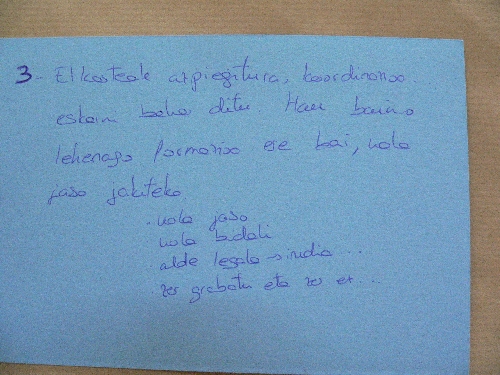 3- Elkarteak azpiegitura, koordinazioa
eskain behar ditu. Hau baino
lehenago formazioa ere bai, nola
jaso jakiteko
. nola jaso
. nola bidali
. alde legala → irudia ...
. zer grabatu eta zer ez ...